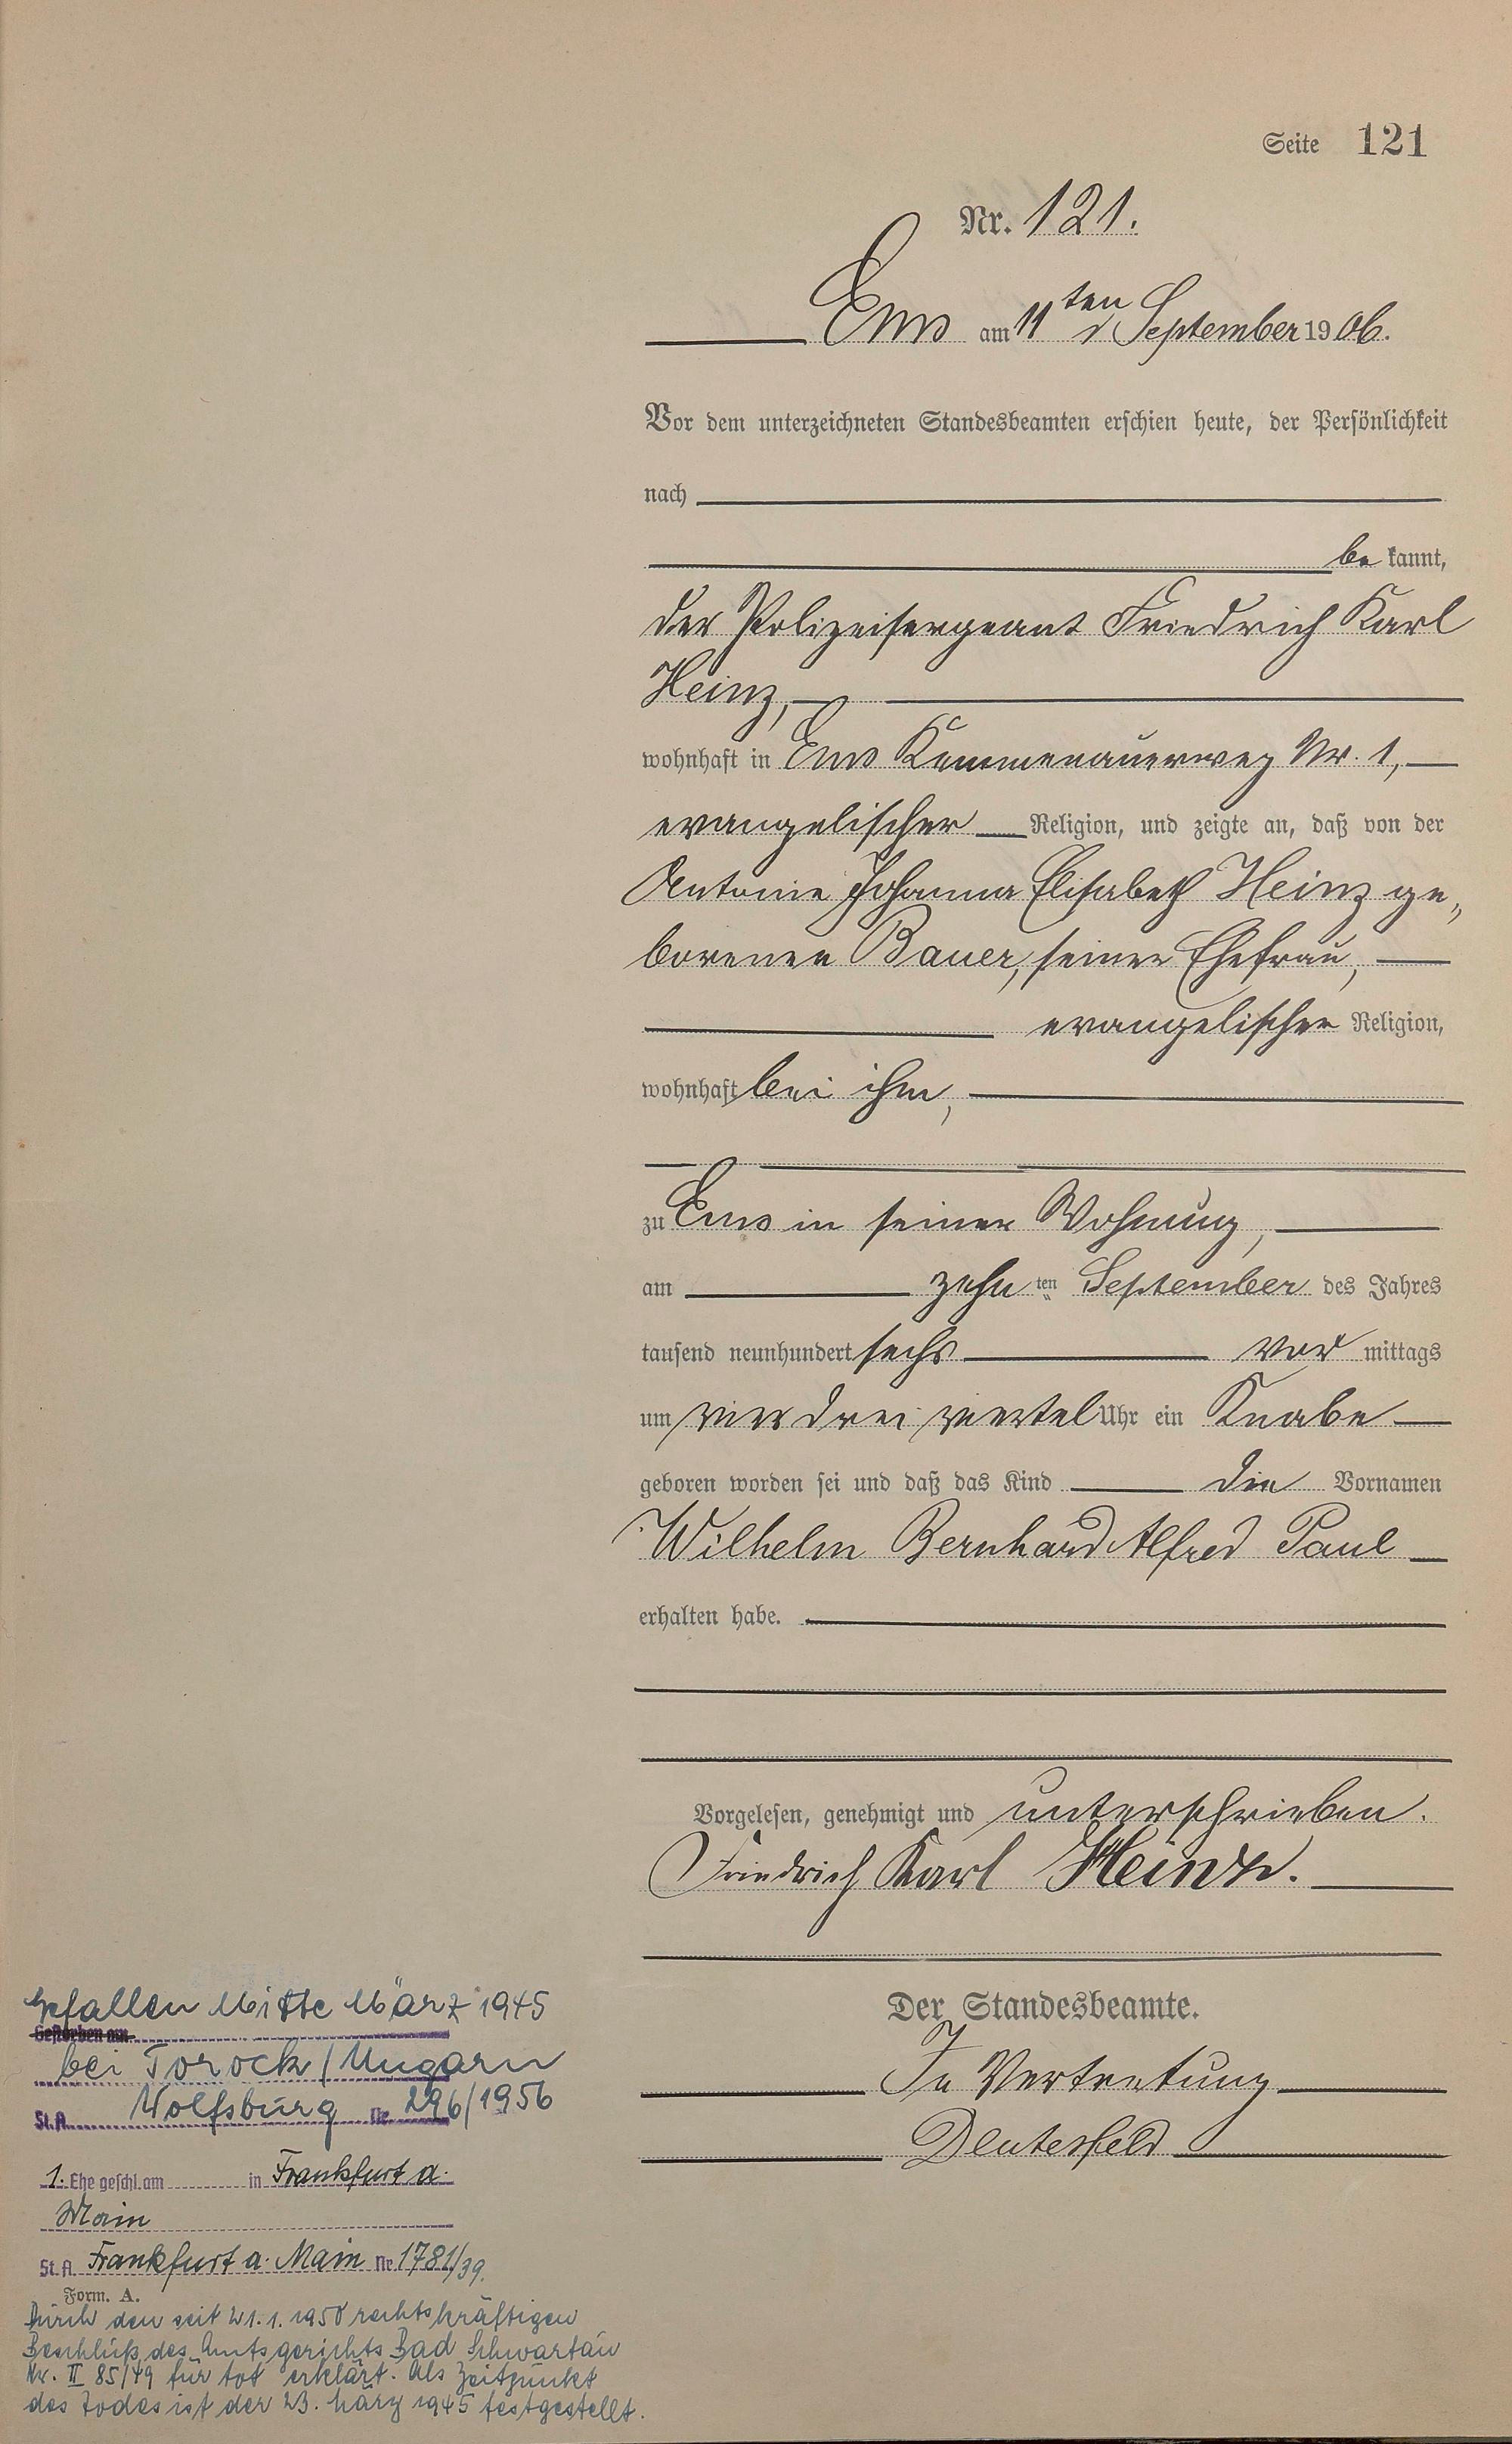 Seite 121
Nr. 121.
Ems am 11ten September 1906.
Vor dem unterzeichneten Standesbeamten erschien heute, der Persönlichkeit
nach
be kannt,
der Polizeisergeant Friedrich Karl
Heinz,
wohnhaft in Ems Kemmenauerweg Nr. 1,
evangelischer Religion, und zeigte an, daß von der
Antonie Johanna Elisabeth Heinz ge„
borenen Bauer, seiner Ehefrau,
evangelischer Religion,
wohnhaft bei ihm,
zu Ems in seiner Wohnung,
am zehn ten September des Jahres
tausend neunhundert sechs vor mittags
um vier drei viertel Uhr ein Knabe
geboren worden sei und daß das Kind die Vornamen
Wilhelm Bernhard Alfred Paul
erhalten habe.
Vorgelesen, genehmigt und unterschrieben.
Friedrich Karl Heinz.
Der Standesbeamte.
In Vertretung
Gefallen Mitte März 1945
Gestorben am
bei Torock / Ungarn
St.A. Wolfsburg Nr 296/1956
1. Ehe geschl. am in Frankfurt a.
Main
St.A. Frankfurt a. Main Nr 1781/39.
Form. A.
Durch den seit 21.1.1950 rechtskräftigen
Beschluß des Amtsgerichts Bad Schwartau
Nr. II 85/49 für tot erklärt. Als Zeitpunkt
des Todes ist der 23. März 1945 festgestellt.